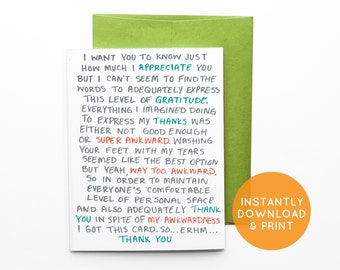 I WANT YOU TO KNOW JUST
HOW MUCH I APPRECIATE YOU
BUT I CAN'T SEEM TO FIND THE
WORDS TO ADEQUATELY EXPRESS
THIS LEVEL OF GRATITUDE.
EVERYTHING I IMAGINED DOING
TO EXPRESS MY THANKS WAS
EITHER NOT GOOD ENOUGH
OR SUPER AWKWARD. WASHING
YOUR FEET WITH MY TEARS
SEEMED LIKE THE BEST OPTION
BUT YEAH, WAY TOO AWKWARD,
SO IN ORDER TO MAINTAIN
EVERYONE'S COMFORTABLE
LEVEL OF PERSONAL SPACE
AND ALSO ADEQUATELY THANK
YOU IN SPITE OF MY AWKWARDNESS
I GOT THIS CARD. SO...ERHM...
THANK YOU
INSTANTLY
DOWNLOAD
& PRINT